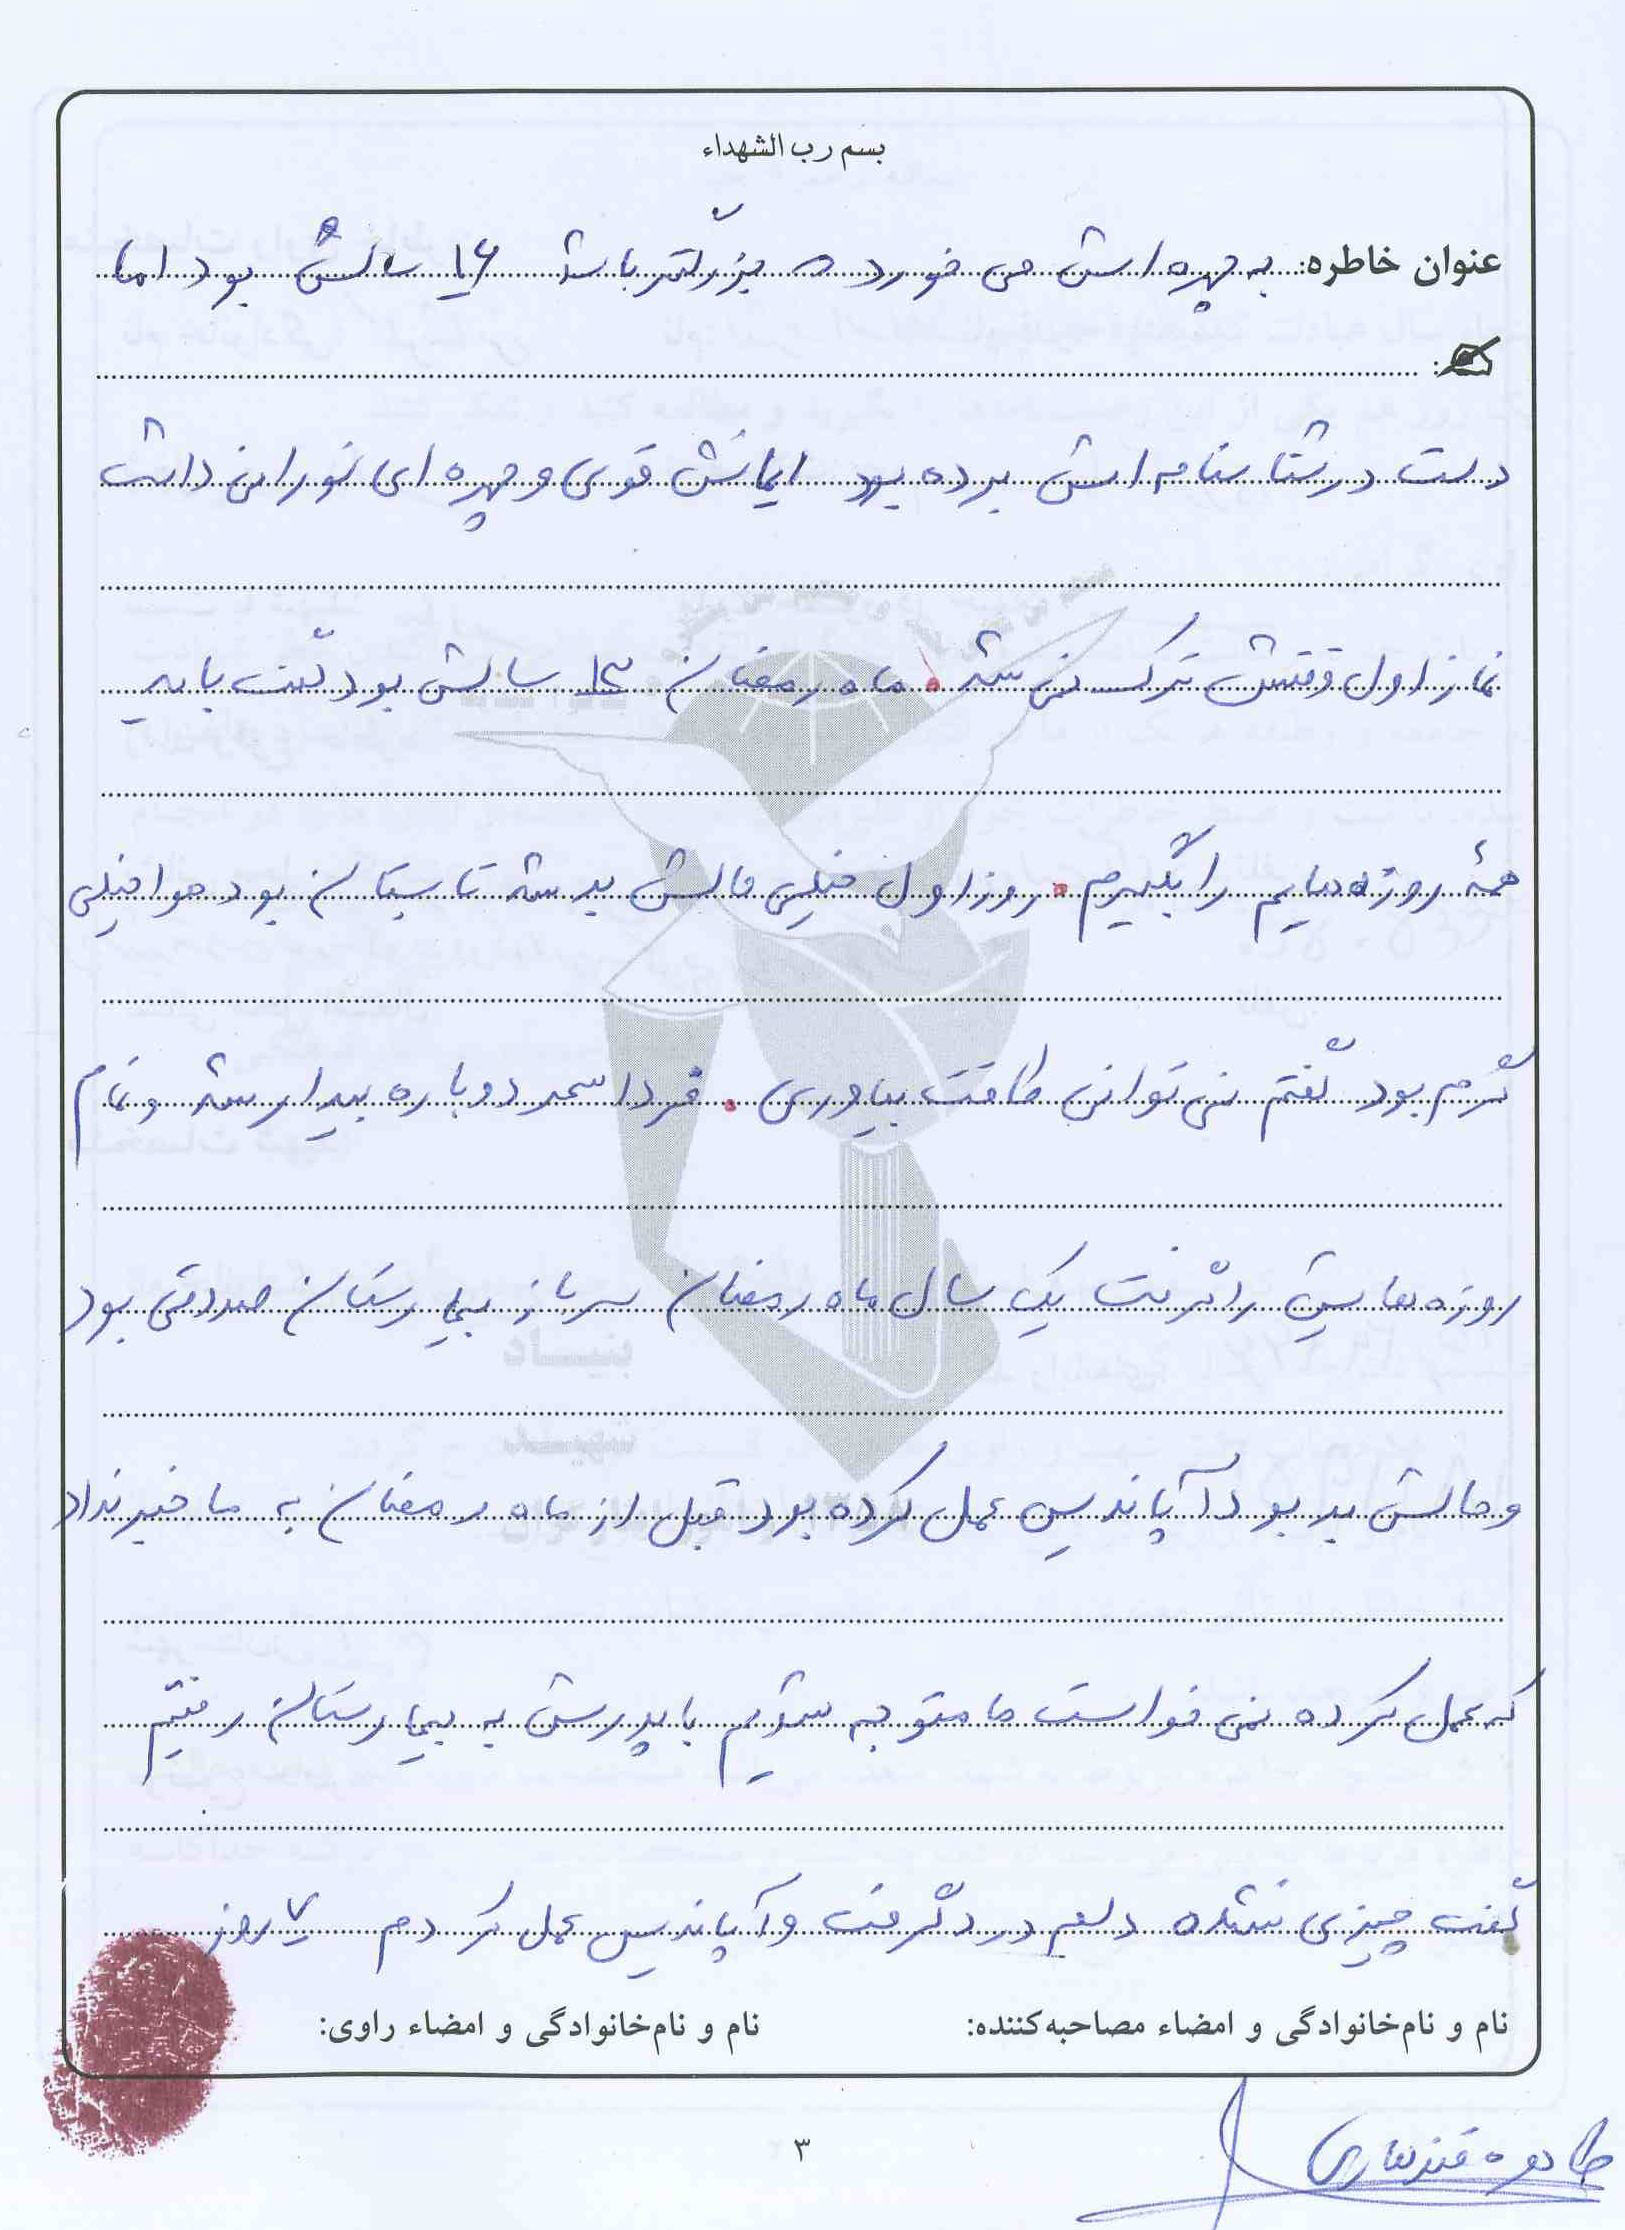 بسم رب الشهداء
عنوان خاطره: به چهره اش می خورد ه بزرگتر باشد ۱۶ سالش بود اما
دست در شناسنامه اش برده بود ایمانش قوی و چهره ای نورانی داشت
نماز اول وقتش ترک نمی شد. ماه رمضان ۱۳ سالش بود گفت باید
همهٔ روزه هایم را بگیرم. روز اول خیلی حالش بد شد تابستان بود هوا خیلی
گرم بود گفتم نمی توانی طاقت بیاوری. فردا سحر دوباره بیدار شد و تمام
روزه هایش را گرفت یک سال ماه رمضان سرباز بیمارستان صدوقی بود
و حالش بد بود آپاندیس عمل کرده بود قبل از ماه رمضان به ما خبر نداد
که عمل کرده نمی خواست ما متوجه شدیم با پدرش به بیمارستان رفتیم
گفت چیزی نشده دلم درد گرفت و آپاندیس عمل کردم ۷ روز
نام و نام‌خانوادگی و امضاء مصاحبه‌کننده: نام و نام‌خانوادگی و امضاء راوی:
۳